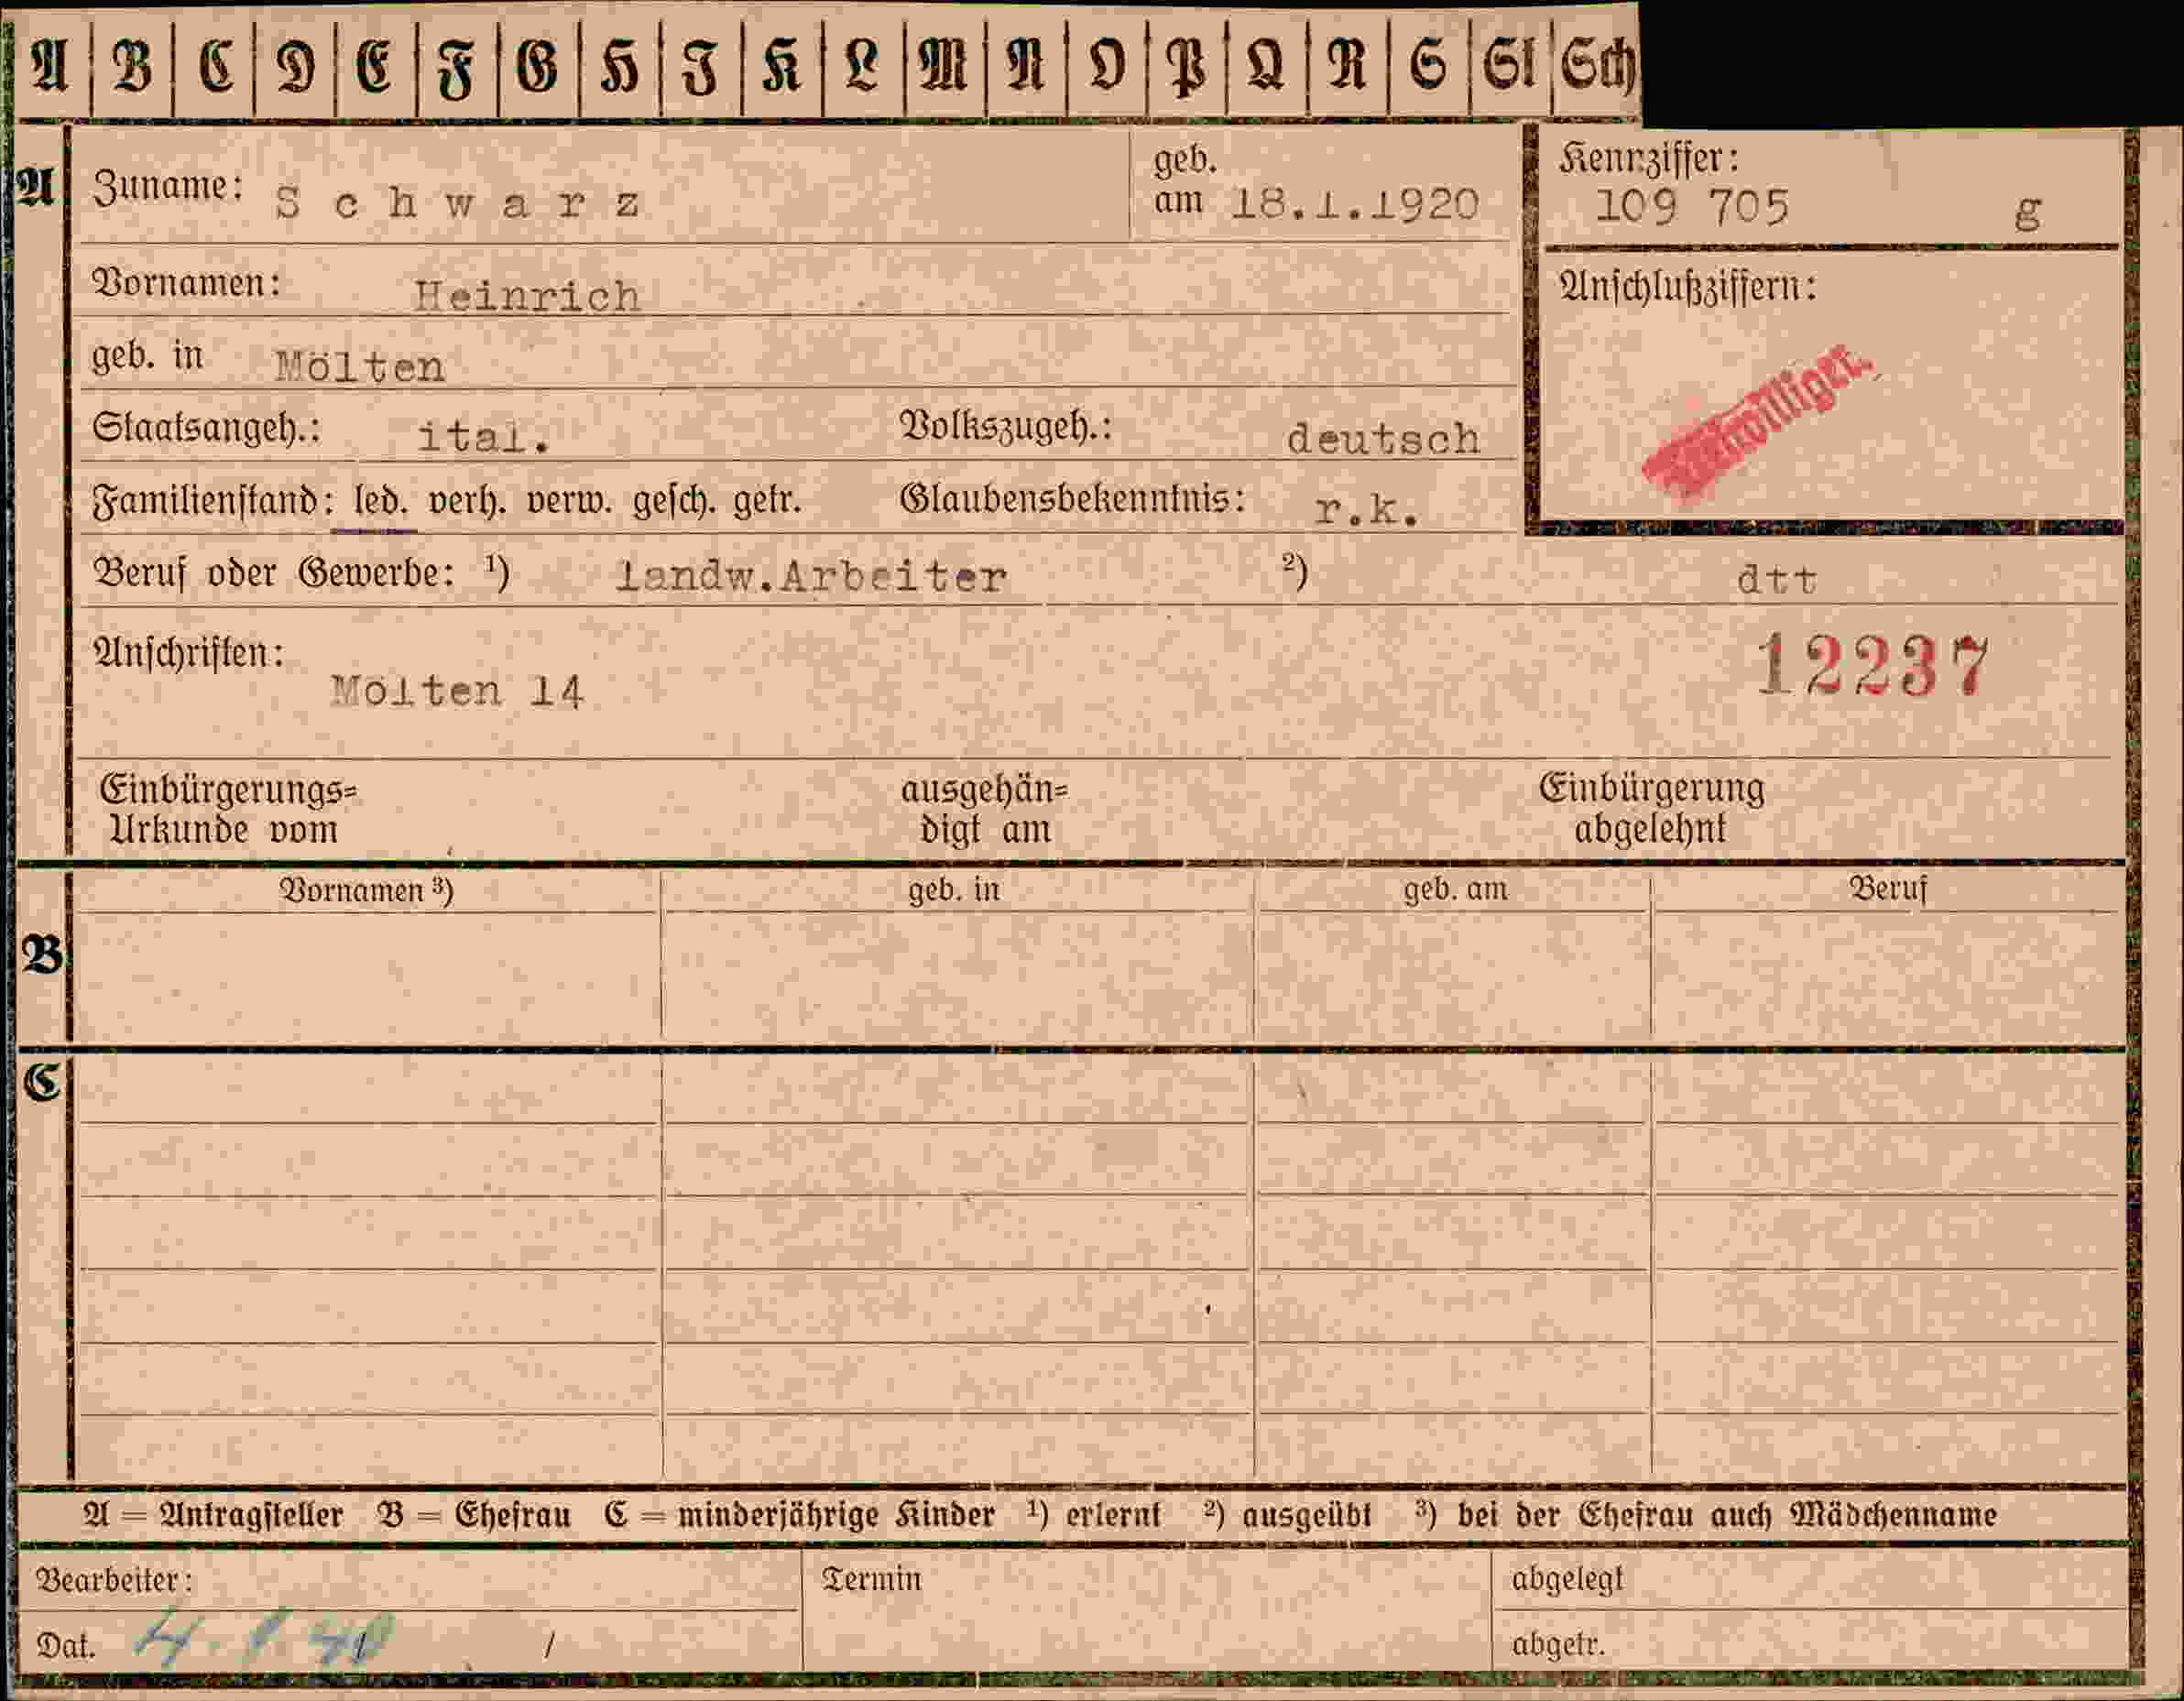 A B C D E F G H I K L M N O P Q R S St Sch
A
Zuname: Schwarz
geb. am 18.1.1920
Kennziffer:
109 705 g
Vornamen: Heinrich
Anschlußziffern:
geb. in Mölten
Staatsangeh.: ital. Volkszugeh.: deutsch
Familienstand: led. verh. verw. gesch. getr. Glaubensbekenntnis: r.k.
Beruf oder Gewerbe: ¹) landw.Arbeiter ²) dtt
Anschriften:
12237
Mölten 14
Einbürgerungs=
Urkunde vom
ausgehän=
digt am
Einbürgerung
abgelehnt
Vornamen ³) geb. in geb. am Beruf
B
C
A = Antragsteller B = Ehefrau C = minderjährige Kinder ¹) erlernt ²) ausgeübt ³) bei der Ehefrau auch Mädchenname
Bearbeiter: Termin abgelegt
Dat. / abgetr.